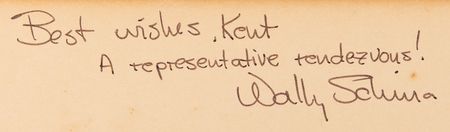 Best wishes, Kent
A representative rendezvous!
Wally Schirra